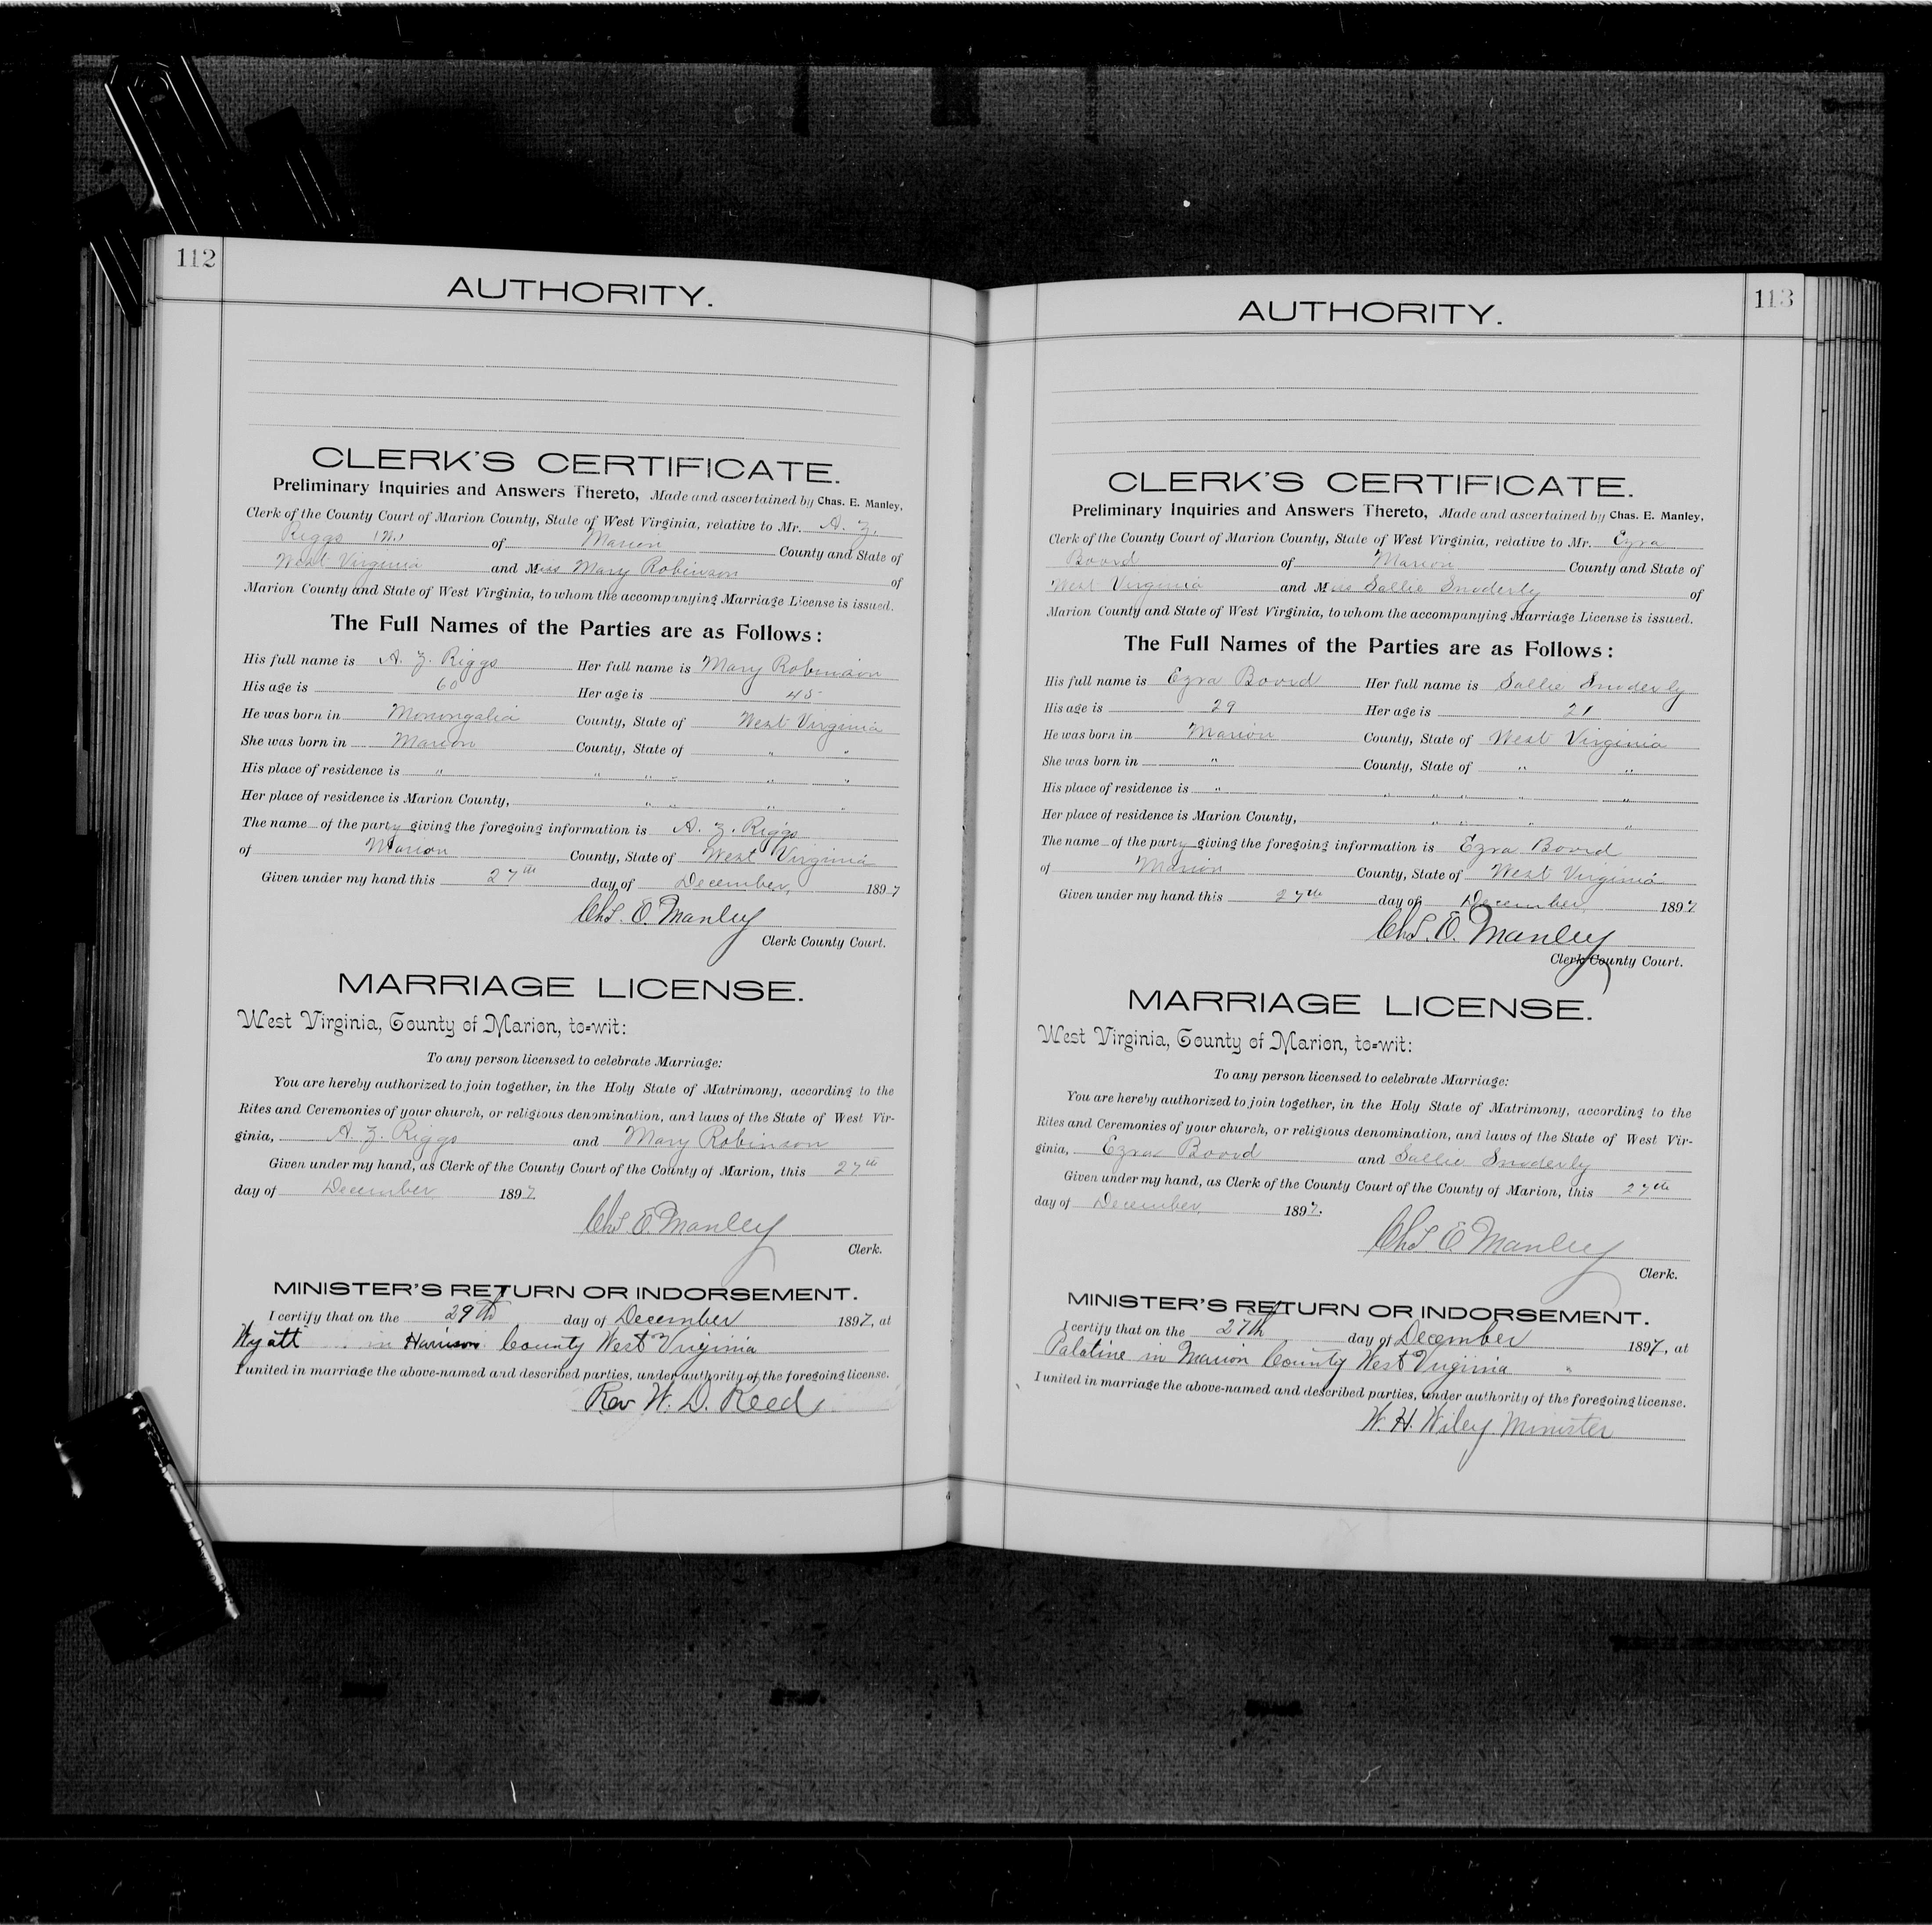 112
AUTHORITY.
CLERK'S CERTIFICATE.
Preliminary Inquiries and Answers Thereto, Made and ascertained by Chas. E. Manley,
Clerk of the County Court of Marion County, State of West Virginia, relative to Mr. A. Z.
Riggs of Marion County and State of
West Virginia and Miss Mary Robinson of
Marion County and State of West Virginia, to whom the accompanying Marriage License is issued.
The Full Names of the Parties are as Follows:
His full name is A. Z. Riggs Her full name is Mary Robinson
His age is 60 Her age is 45
He was born in Monongalia County, State of West Virginia
She was born in Marion County, State of " "
His place of residence is " " " " " "
Her place of residence is Marion County, " " " "
The name of the party giving the foregoing information is A. Z. Riggs
of Marion County, State of West Virginia
Given under my hand this 27th day of December, 1897
Chs. E. Manley
Clerk County Court.
MARRIAGE LICENSE.
West Virginia, County of Marion, to=wit:
To any person licensed to celebrate Marriage:
You are hereby authorized to join together, in the Holy State of Matrimony, according to the
Rites and Ceremonies of your church, or religious denomination, and laws of the State of West Vir-
ginia, A. Z. Riggs and Mary Robinson
Given under my hand, as Clerk of the County Court of the County of Marion, this 27th
day of December 1897
Chs. E. Manley
Clerk.
MINISTER'S RETURN OR INDORSEMENT.
I certify that on the 29th day of December 1897, at
Wyatt in Harrison County West Virginia
I united in marriage the above-named and described parties, under authority of the foregoing license.
Rev W. D. Reed
113
AUTHORITY.
CLERK'S CERTIFICATE.
Preliminary Inquiries and Answers Thereto, Made and ascertained by Chas. E. Manley,
Clerk of the County Court of Marion County, State of West Virginia, relative to Mr. Ezra
Boord of Marion County and State of
West Virginia and Miss Sallie Snoderly of
Marion County and State of West Virginia, to whom the accompanying Marriage License is issued.
The Full Names of the Parties are as Follows:
His full name is Ezra Boord Her full name is Sallie Snoderly
His age is 29 Her age is 21
He was born in Marion County, State of West Virginia
She was born in " County, State of " "
His place of residence is " " " " " "
Her place of residence is Marion County, " " " "
The name of the party giving the foregoing information is Ezra Boord
of Marion County, State of West Virginia
Given under my hand this 27th day of December, 1897
Chs. E. Manley
Clerk County Court.
MARRIAGE LICENSE.
West Virginia, County of Marion, to=wit:
To any person licensed to celebrate Marriage:
You are hereby authorized to join together, in the Holy State of Matrimony, according to the
Rites and Ceremonies of your church, or religious denomination, and laws of the State of West Vir-
ginia, Ezra Boord and Sallie Snoderly
Given under my hand, as Clerk of the County Court of the County of Marion, this 27th
day of December, 1897.
Chs E. Manley
Clerk.
MINISTER'S RETURN OR INDORSEMENT.
I certify that on the 27th day of December 1897, at
Palatine in Marion County West Virginia "
I united in marriage the above-named and described parties, under authority of the foregoing license.
W. H. Wiley Minister